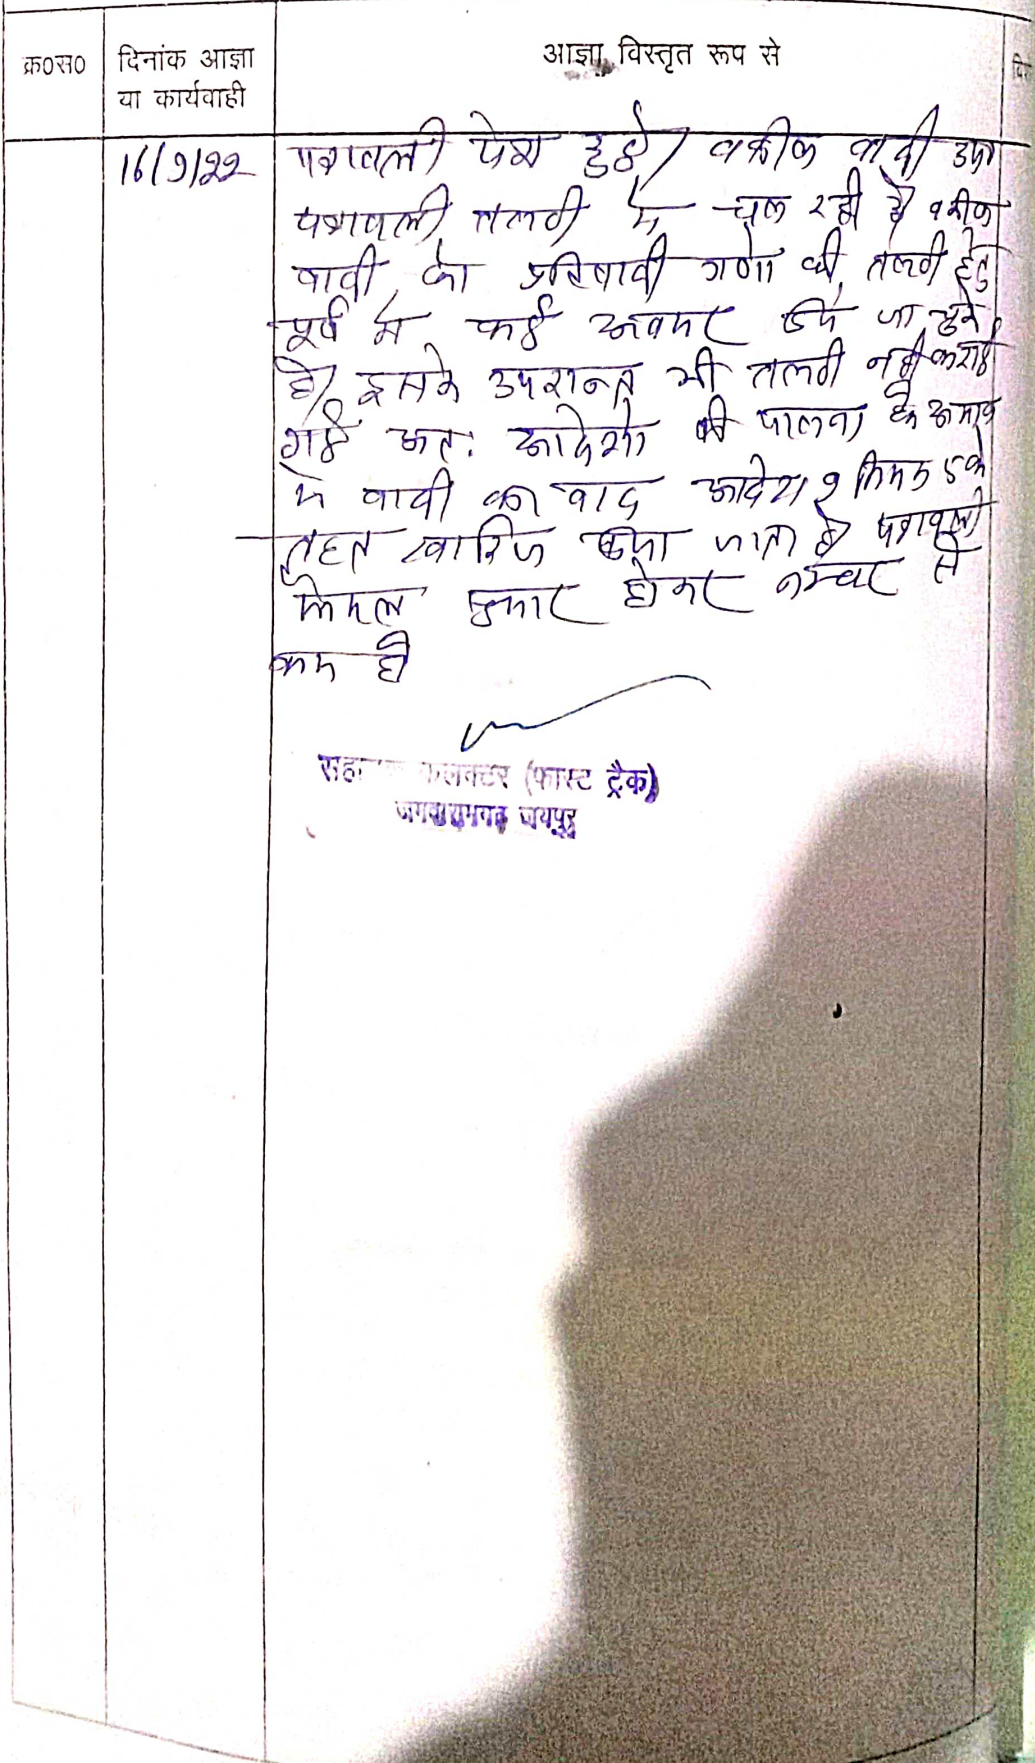 क्र०स० दिनांक आज्ञा आज्ञा विस्तृत रूप से
या कार्यवाही
16/9/22 पत्रावली पेश हुई। वकील वादी उप०
पत्रावली तलबी में चल रही है वकील
वादी को प्रतिवादी गणों की तलबी हेतु
पूर्व में कई अवसर दिये जा चुके
है। इसके उपरान्त भी तलबी नहीं कराई
गई अतः आदेशों की पालना के अभाव
में वादी का वाद आदेश 9 नियम 5 के
तहत खारिज किया जाता है पत्रावली
फैसल शुमार होकर नम्बर से
कम हो
कलक्टर (फास्ट ट्रैक)
जमवारामगढ जयपुर